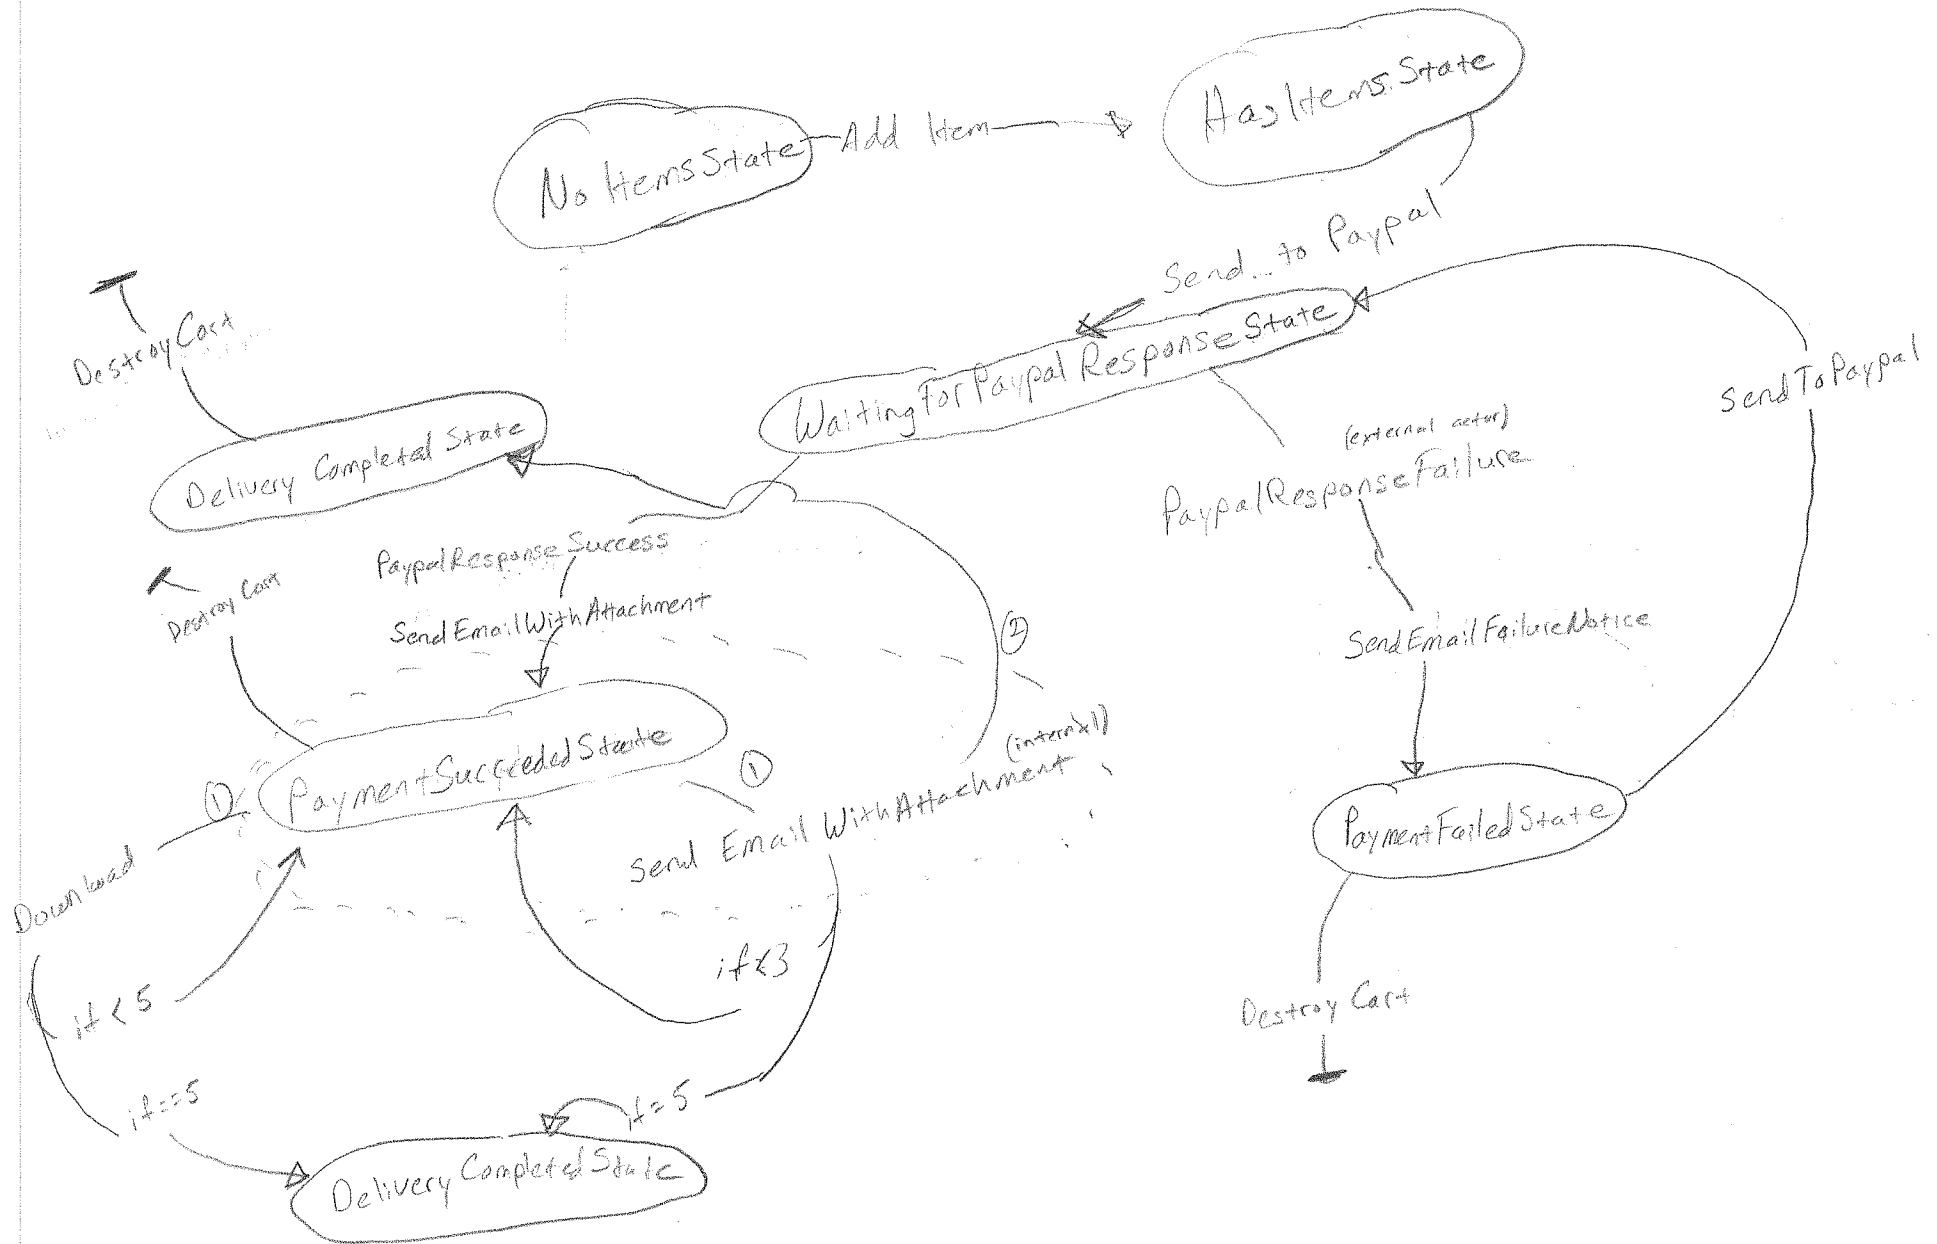 HasItemsState
NoItemsState
Add Item
Send...to Paypal
DestroyCart
WaitingForPaypalResponseState
SendToPaypal
Delivery Completed State
(external actor)
PaypalResponseFailure
PaypalResponseSuccess
Destroy Cart
SendEmailWithAttachment
2
SendEmailFailureNotice
PaymentSucceededState
1
(internal)
1
Send Email WithAttachment
PaymentFailedState
Download
if<3
if < 5
Destroy Cart
if==5
if=5
DeliveryCompletedState